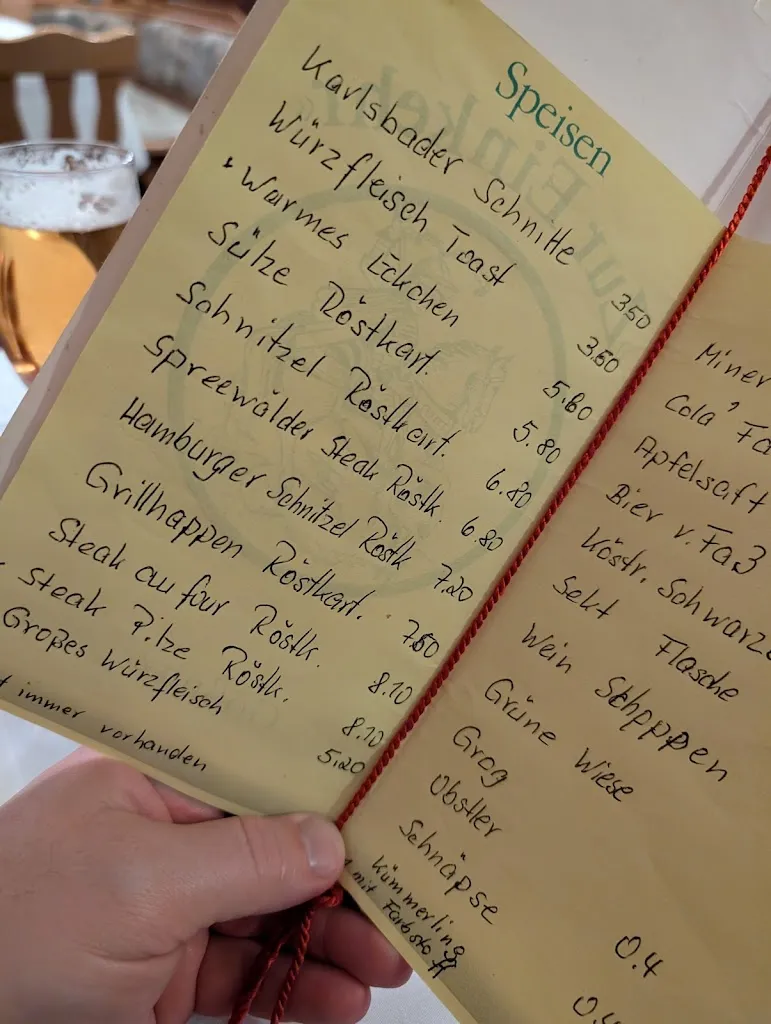 Speisen
Karlsbader Schnitte 3.50
Würzfleisch Toast 3.60
Warmes Eckchen 5.60
Sülze Röstkart. 5.80
Schnitzel Röstkart. 6.80
Spreewälder Steak Röstk. 6.80
Hamburger Schnitzel Röstk 7.20
Grillhappen Röstkart. 7.60
Steak au four Röstk. 8.10
Steak Pilze Röstk. 8.10
Großes Würzfleisch 5.20
t immer vorhanden
Miner
Cola, Fa
Apfelsaft
Bier v. Faß
Köstr. Schwarz
Sekt Flasche
Wein Schppen
Grüne Wiese
Grog
Obstler
Schnäpse
Kümmerling
mit Farbstoff
0.4
Zur Einkehr